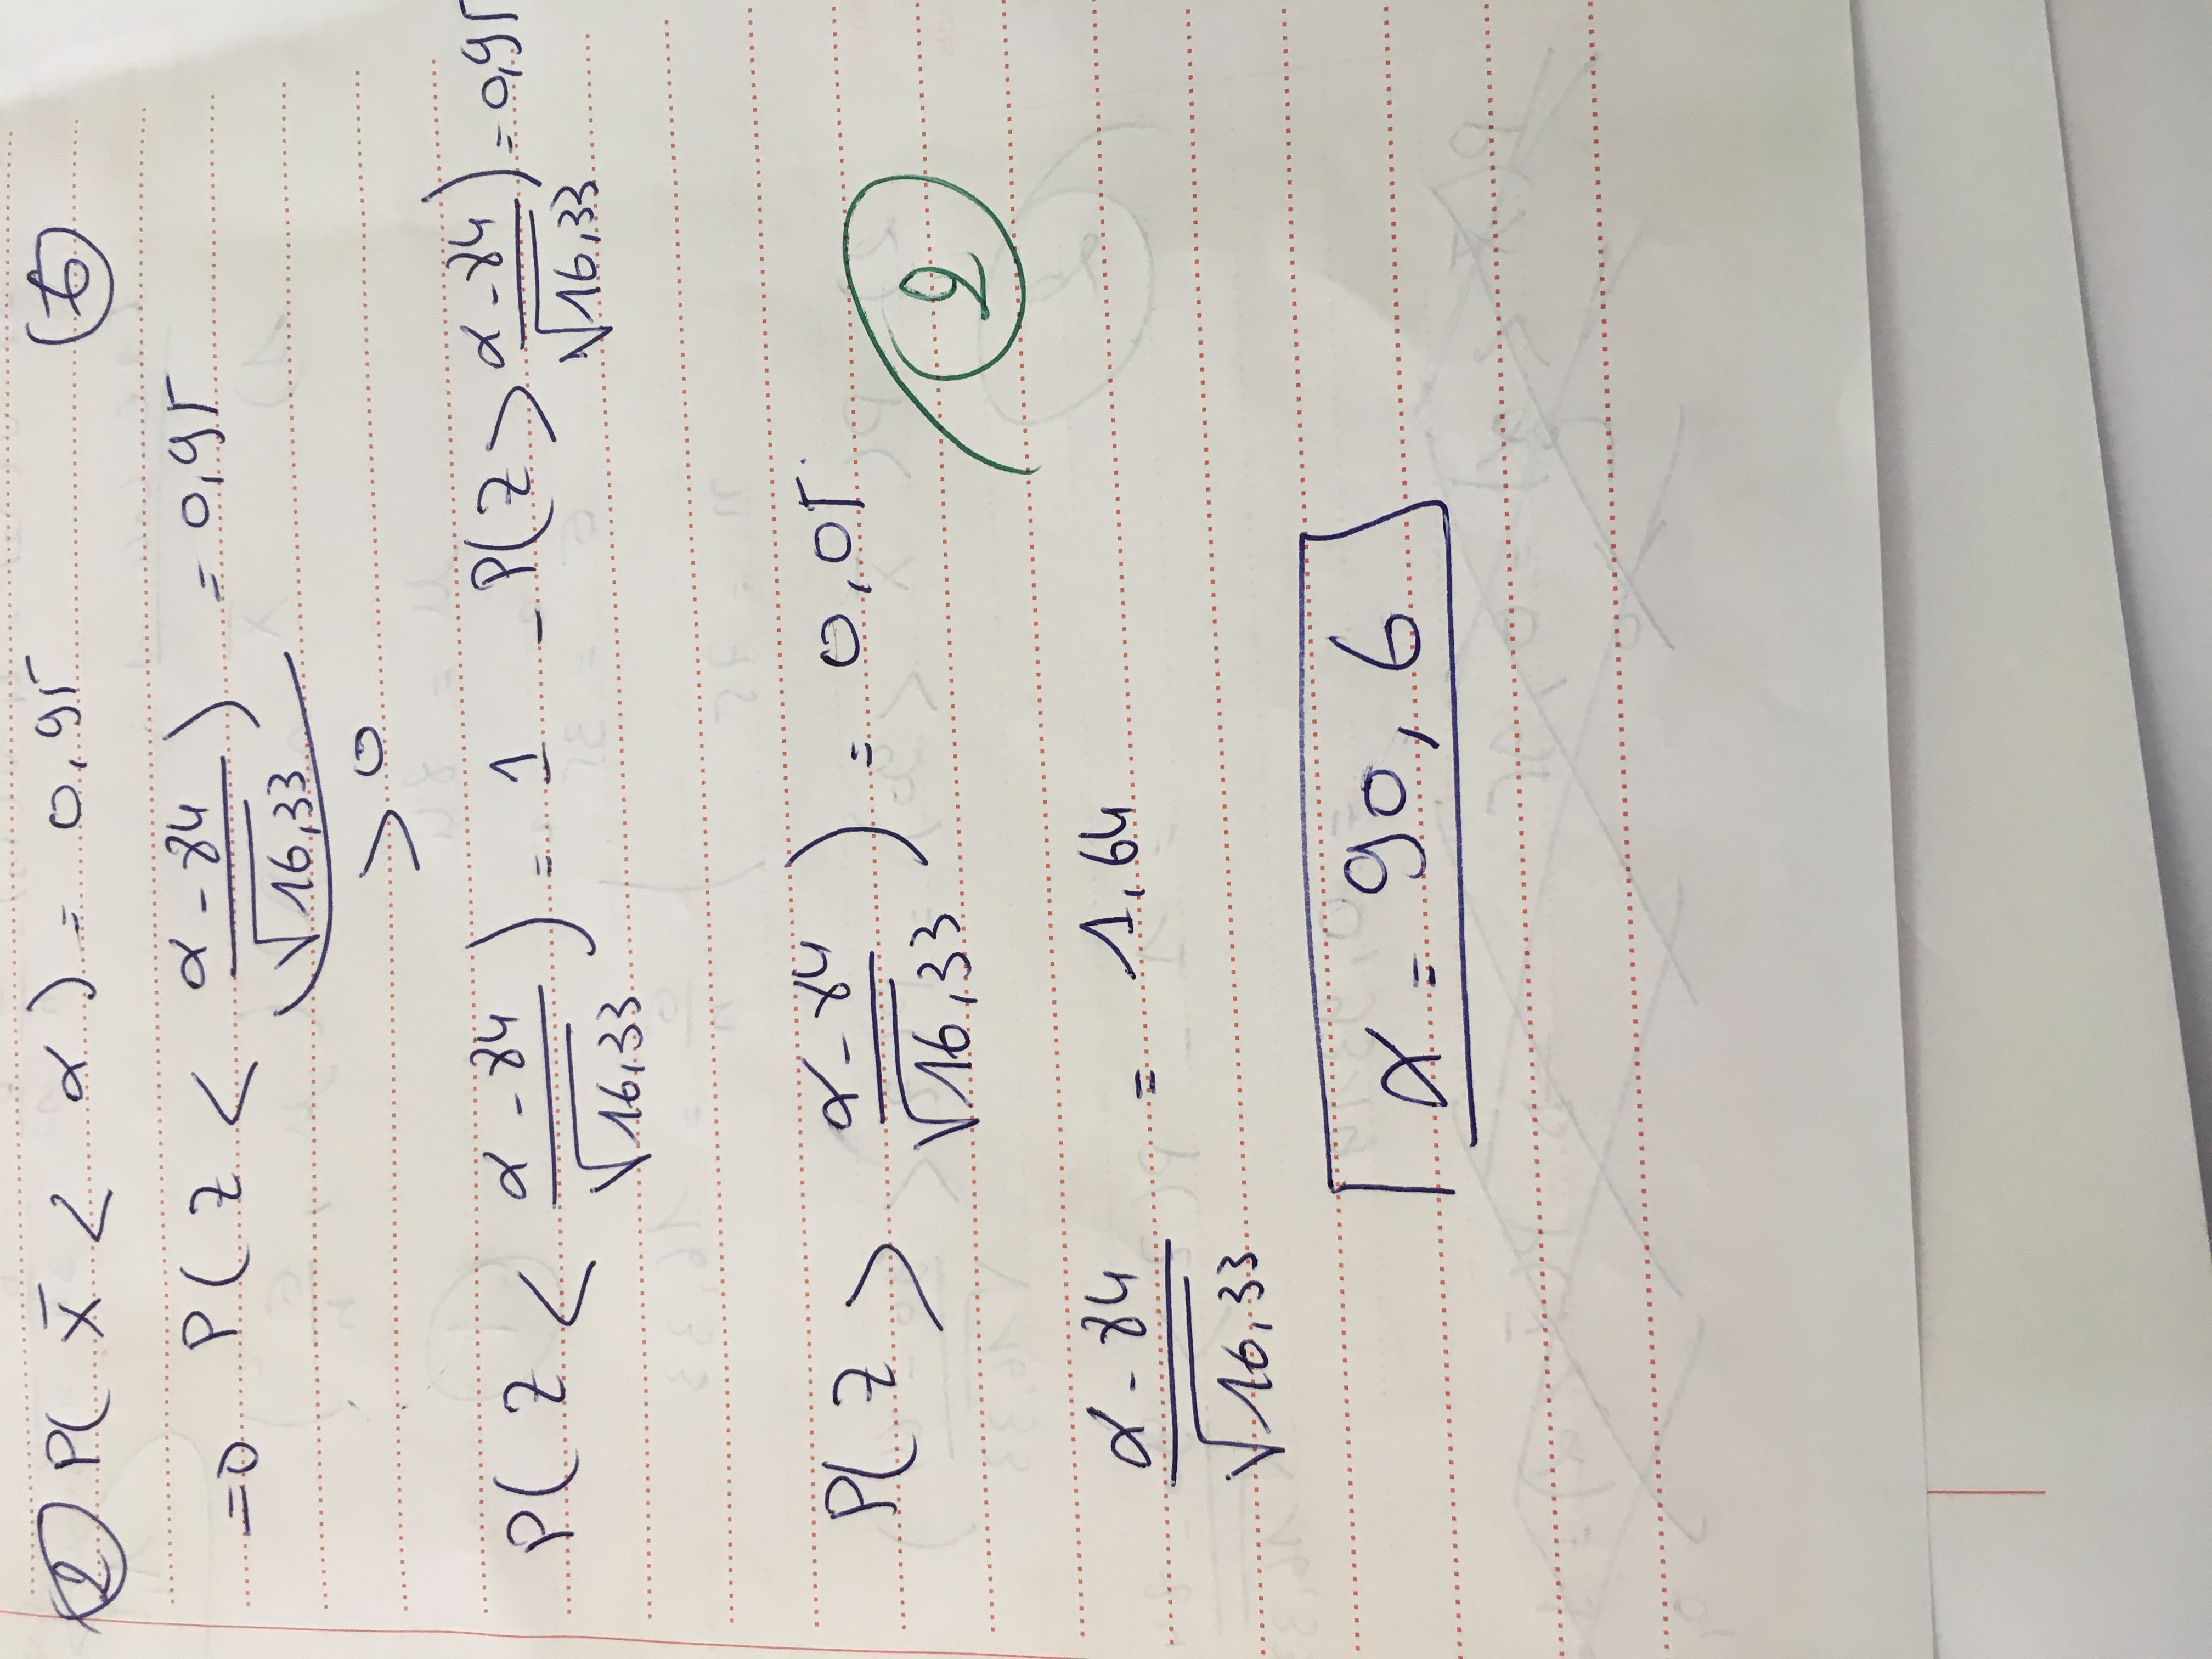 ② P( X̄ < α ) = 0,95 ⑥
=> P( Z < (α - 84)/√16,33 ) = 0,95
> 0
P( Z < (α - 84)/√16,33 ) = 1 - P( Z > (α - 84)/√16,33 ) = 0,95
P( Z > (α - 84)/√16,33 ) = 0,05
2
(α - 84)/√16,33 = 1,64
α = 90,6